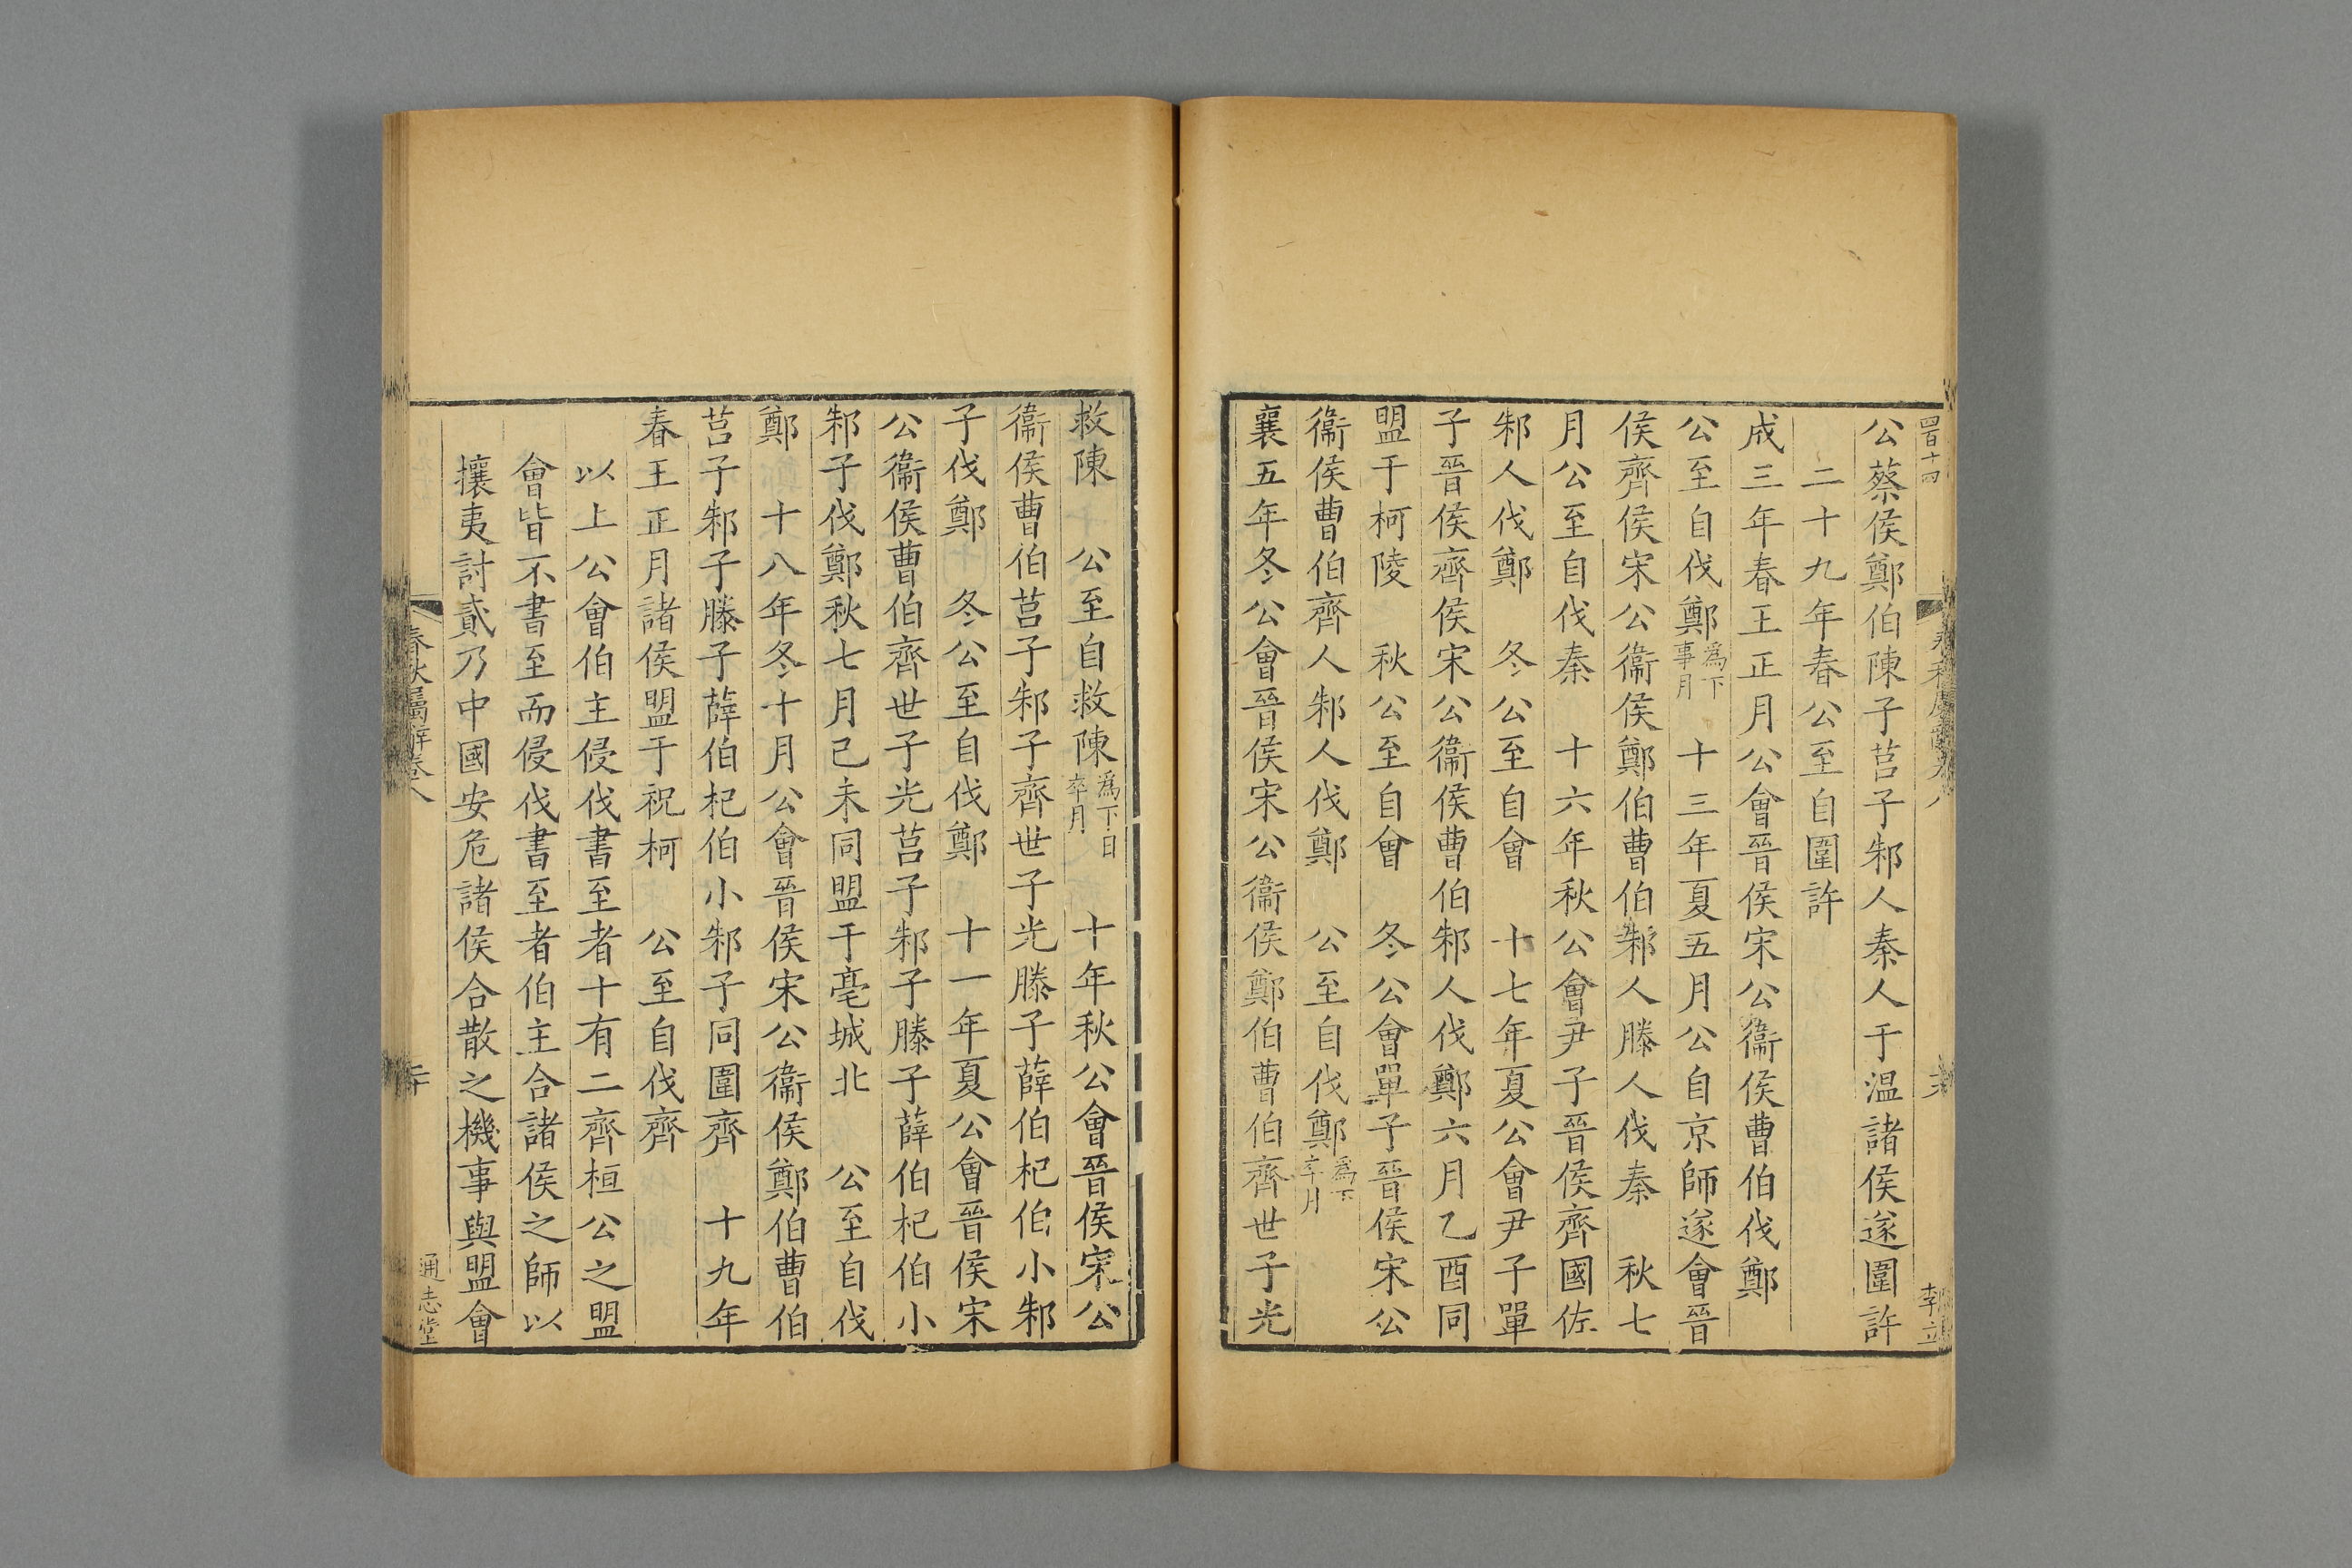 四百十四
公蔡侯鄭伯陳子莒子邾人秦人于温諸侯遂圍許
二十九年春公至自圍許
成三年春王正月公會晉侯宋公衞侯曹伯伐鄭
公至自伐鄭為下事月　十三年夏五月公自京師遂會晉
侯齊侯宋公衞侯鄭伯曹伯邾人滕人伐秦　秋七
月公至自伐秦　十六年秋公會尹子晉侯齊國佐
邾人伐鄭　冬公至自會　十七年夏公會尹子單
子晉侯齊侯宋公衞侯曹伯邾人伐鄭六月乙酉同
盟于柯陵　秋公至自會　冬公會單子晉侯宋公
衞侯曹伯齊人邾人伐鄭　公至自伐鄭為下卒月
襄五年冬公會晉侯宋公衞侯鄭伯曹伯齊世子光
救陳　公至自救陳為下日卒月　十年秋公會晉侯宋公
衞侯曹伯莒子邾子齊世子光滕子薛伯杞伯小邾
子伐鄭　冬公至自伐鄭　十一年夏公會晉侯宋
公衞侯曹伯齊世子光莒子邾子滕子薛伯杞伯小
邾子伐鄭秋七月己未同盟于亳城北　公至自伐
鄭　十八年冬十月公會晉侯宋公衞侯鄭伯曹伯
莒子邾子滕子薛伯杞伯小邾子同圍齊　十九年
春王正月諸侯盟于祝柯　公至自伐齊
以上公會伯主侵伐書至者十有二齊桓公之盟
會皆不書至而侵伐書至者伯主合諸侯之師以
攘夷討貳乃中國安危諸侯合散之機事與盟會
春秋屬辭卷八
通志堂